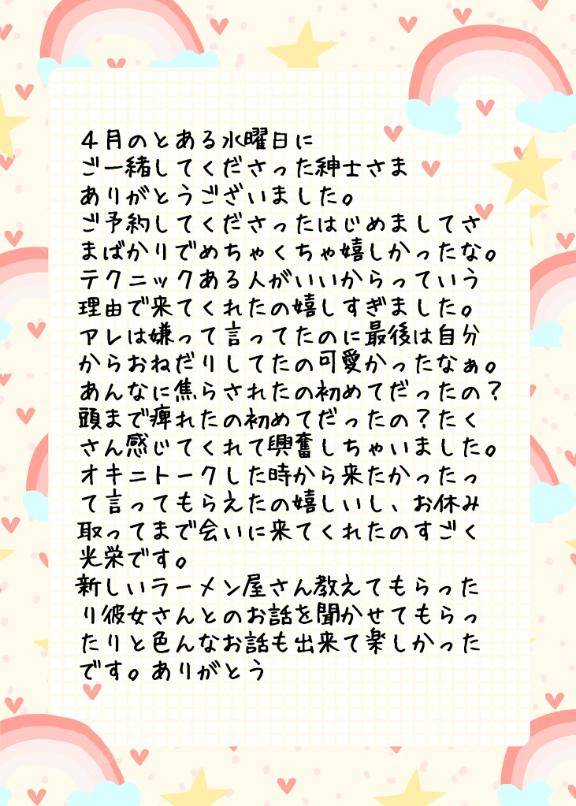 4月のとある水曜日に
ご一緒してくださった紳士さま
ありがとうございました。
ご予約してくださったはじめましてさ
まばかりでめちゃくちゃ嬉しかったな。
テクニックある人がいいからっていう
理由で来てくれたの嬉しすぎました。
アレは嫌って言ってたのに最後は自分
からおねだりしてたの可愛かったなぁ。
あんなに焦らされたの初めてだったの?
頭まで痺れたの初めてだったの?たく
さん感じてくれて興奮しちゃいました。
オキニトークした時から来たかったっ
て言ってもらえたの嬉しいし、お休み
取ってまで会いに来てくれたのすごく
光栄です。
新しいラーメン屋さん教えてもらった
り彼女さんとのお話を聞かせてもらっ
たりと色んなお話も出来て楽しかった
です。ありがとう